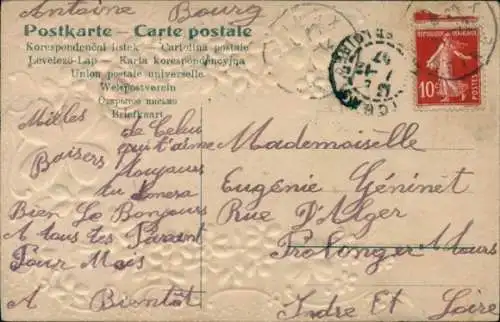 Antoine Bourg
Postkarte — Carte postale
Korespondenční lístek — Cartolina postale
Levelező-Lap — Karta korespondencyjna
Union postale universelle
Weltpostverein
Открытое письмо
Briefkaart
REPUBLIQUE FRANÇAISE
10c
POSTES
Milles
de Celui
qui t'aime
Baisers
Toujours
tu
Bien Le Bonjours
A tous tes Parent
Pour Mois
A Bientôt
Mademoiselle
Eugénie Géninet
Rue D'Alger
Prolongér Tours
Indre Et Loire